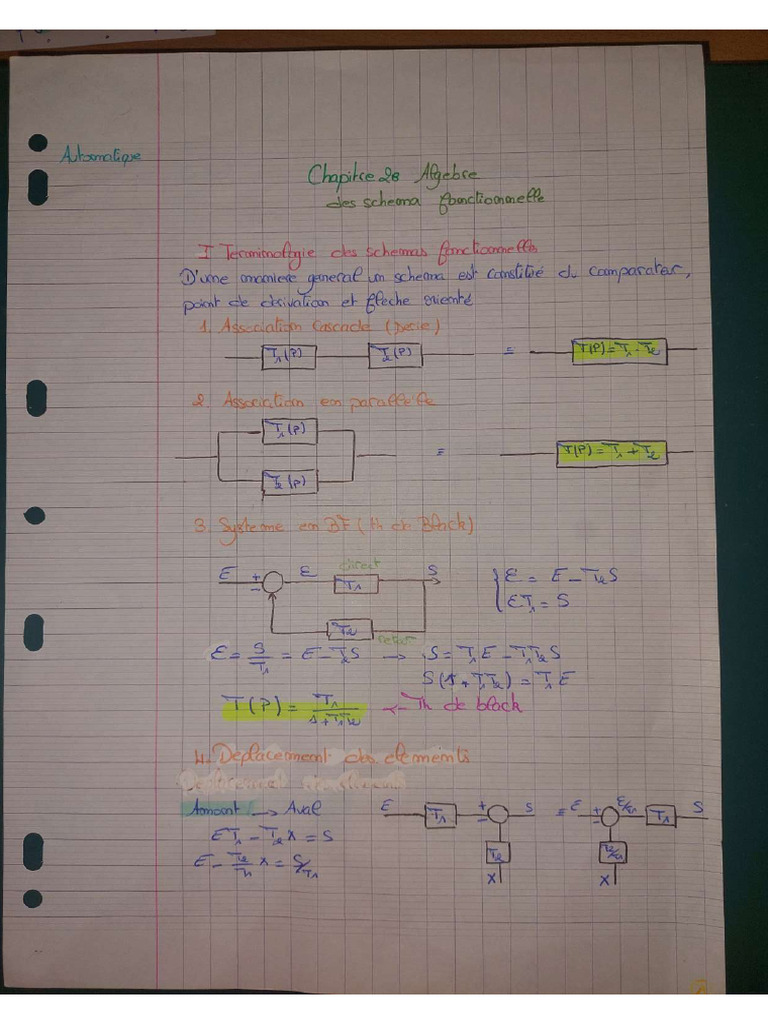 Automatique
Chapitre 2: Algebre
des schema fonctionnelle
I Terminologie des schemas fonctionnelles
D'une maniere general un schema est constitué du comparateur,
point de derivation et fleche orienté
1. Association Cascade (Serie)
T₁(P) T₂(P) = T(P) = T₁ · T₂
2. Association en parallele
T₁(P)
T₂(P) = T(P) = T₁ + T₂
3. Systeme en BF (th de Black)
direct
E + - Ɛ T₁ S
Ɛ = E - T₂S
ƐT₁ = S
T₂
retour
Ɛ = S/T₁ = E - T₂S → S = T₁E - T₁T₂S
S(1 + T₁T₂) = T₁E
T(P) = T₁/(1 + T₁T₂) ← Th de black
4. Deplacement des elements
Amont → Aval
E T₁ + - S = E + - E/T₁ T₁ S
ET₁ - T₂X = S
T₂ T₂/T₁
E - T₂/T₁ X = S/T₁
X X